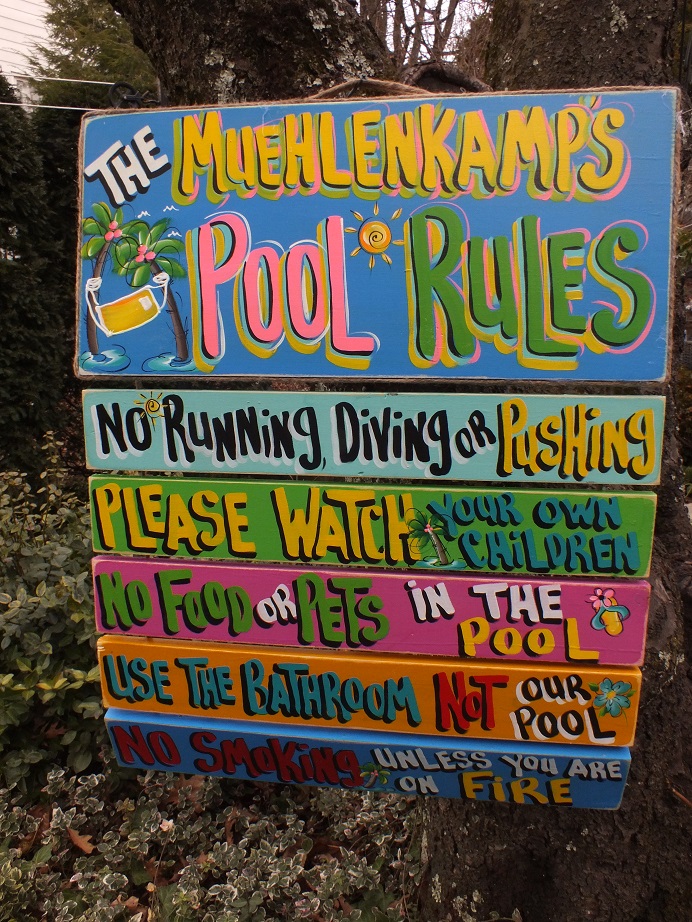 THE MUEHLENKAMP'S
POOL RULES
NO RUNNING, DIVING OR PUSHING
PLEASE WATCH YOUR OWN
CHILDREN
NO FOOD OR PETS IN THE
POOL
USE THE BATHROOM NOT OUR
POOL
NO SMOKING UNLESS YOU ARE
ON FIRE